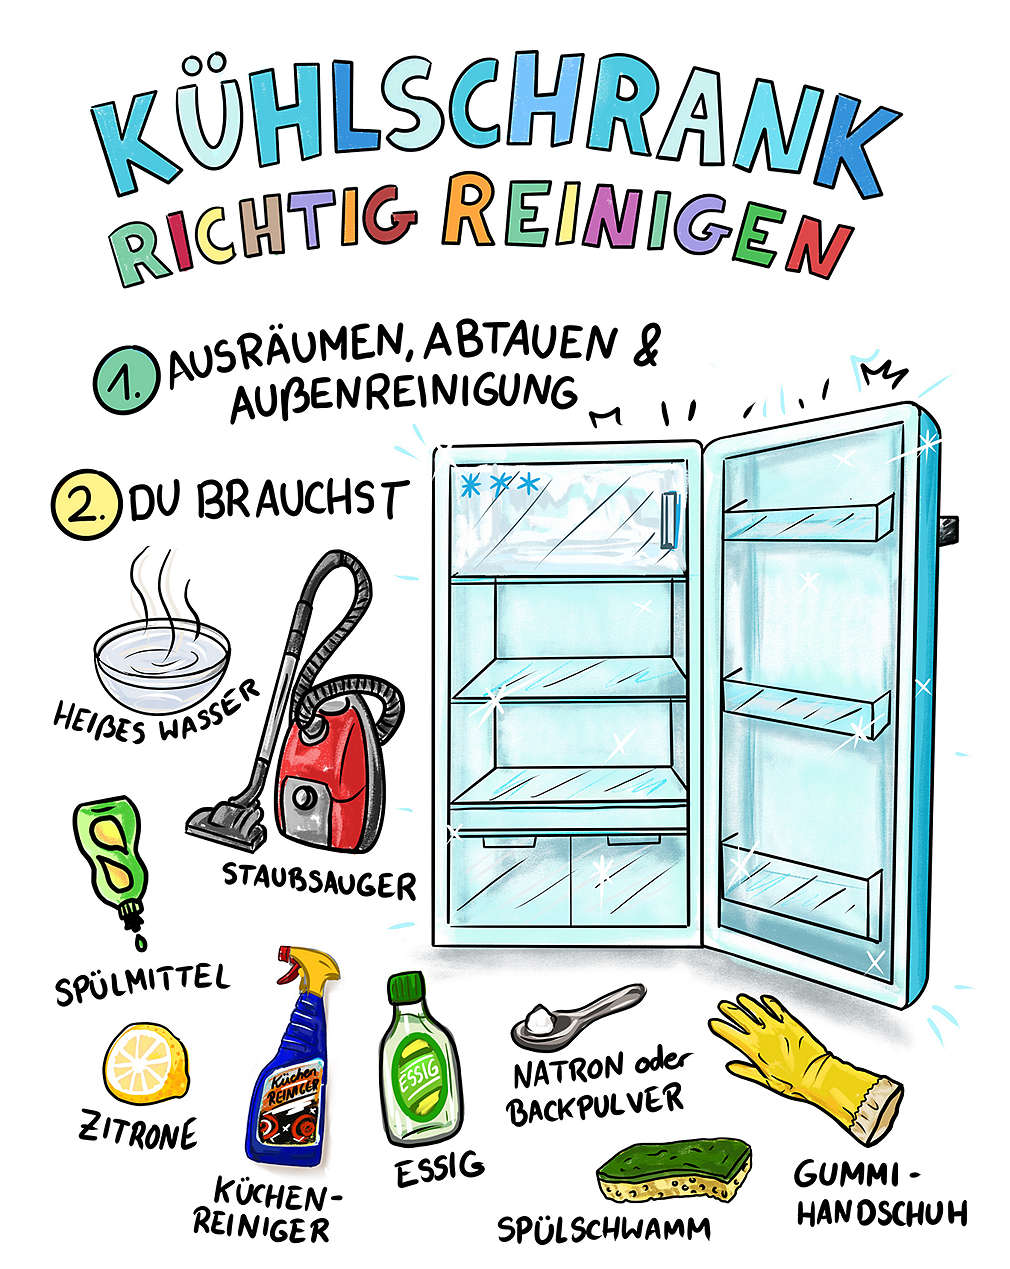 KÜHLSCHRANK
RICHTIG REINIGEN
1. AUSRÄUMEN, ABTAUEN &
AUßENREINIGUNG
2. DU BRAUCHST
HEIßES WASSER
STAUBSAUGER
SPÜLMITTEL
ZITRONE
Küchen
REINIGER
KÜCHEN-
REINIGER
ESSIG
ESSIG
NATRON oder
BACKPULVER
SPÜLSCHWAMM
GUMMI-
HANDSCHUH